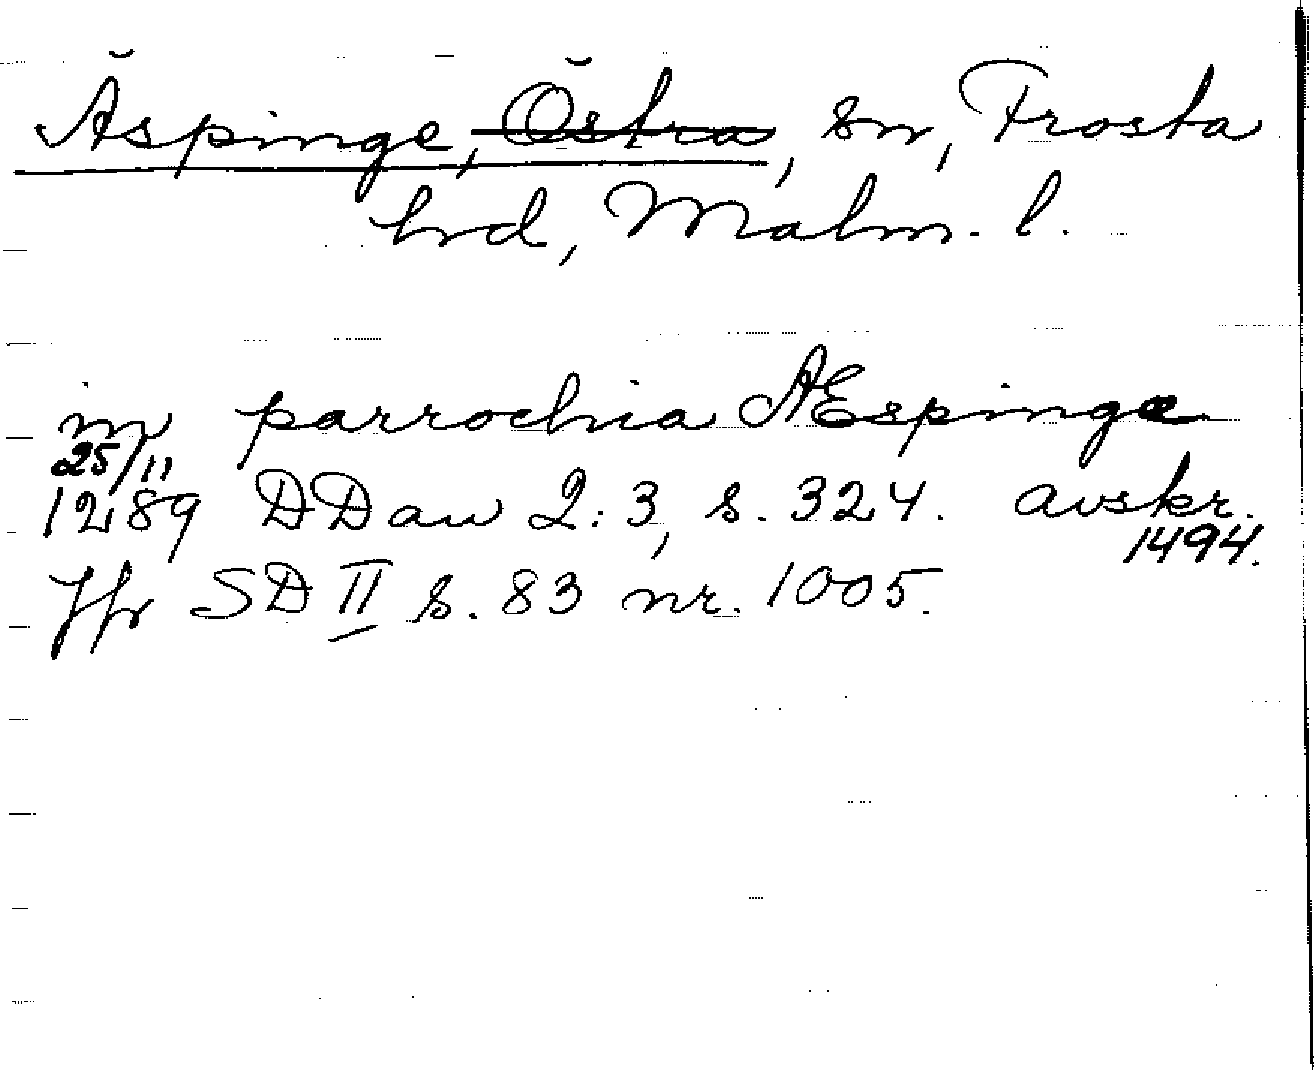 Äspinge, Östra, sn, Frosta
hd, Malm. l.
in parrochia AEspinge
25/11
1289 DDan 2:3, s. 324. avskr.
1494.
Jfr SD II s. 83 nr. 1005.